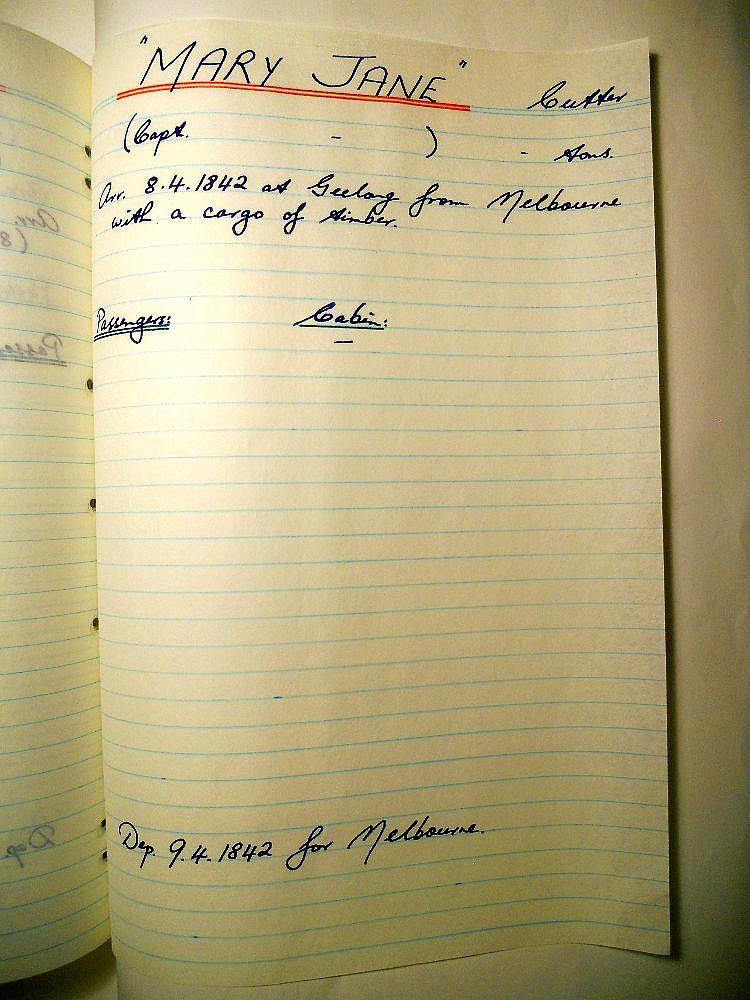 "MARY JANE" Cutter
(Capt. - ) - tons.
Arr. 8.4.1842 at Geelong from Melbourne
with a cargo of timber.
Passengers: Cabin:
-
Dep. 9.4.1842 for Melbourne.